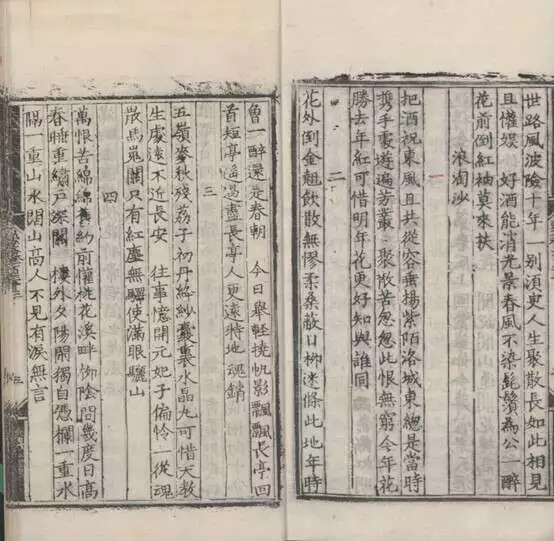 世路風波險十年一別須臾人生聚散長如此相見
且懽娛 好酒能消光景春風不染髭鬚為公一醉
花前倒紅袖莫來扶
浪淘沙
一
把酒祝東風且共從容垂楊紫陌洛城東總是當時
攜手處遊遍芳叢 聚散苦忽忽此恨無窮今年花
勝去年紅可惜明年花更好知與誰同
二
花外倒金翹飲散無憀柔桑蔽日柳迷條此地年時
曾一醉還是春朝 今日舉輕橈帆影飄飄長亭回
首短亭遙過盡長亭人更遠特地魂銷
三
五嶺麥秋殘荔子初丹絳紗囊裏水晶丸可惜天教
生處遠不近長安 往事憶開元妃子偏憐一從魂
散馬嵬關只有紅塵無驛使滿眼驪山
四
萬恨苦綿綿舊約前懽桃花溪畔柳陰間幾度日高
春睡重繡戶深關 樓外夕陽閑獨自憑欄一重水
隔一重山水闊山高人不見有淚無言